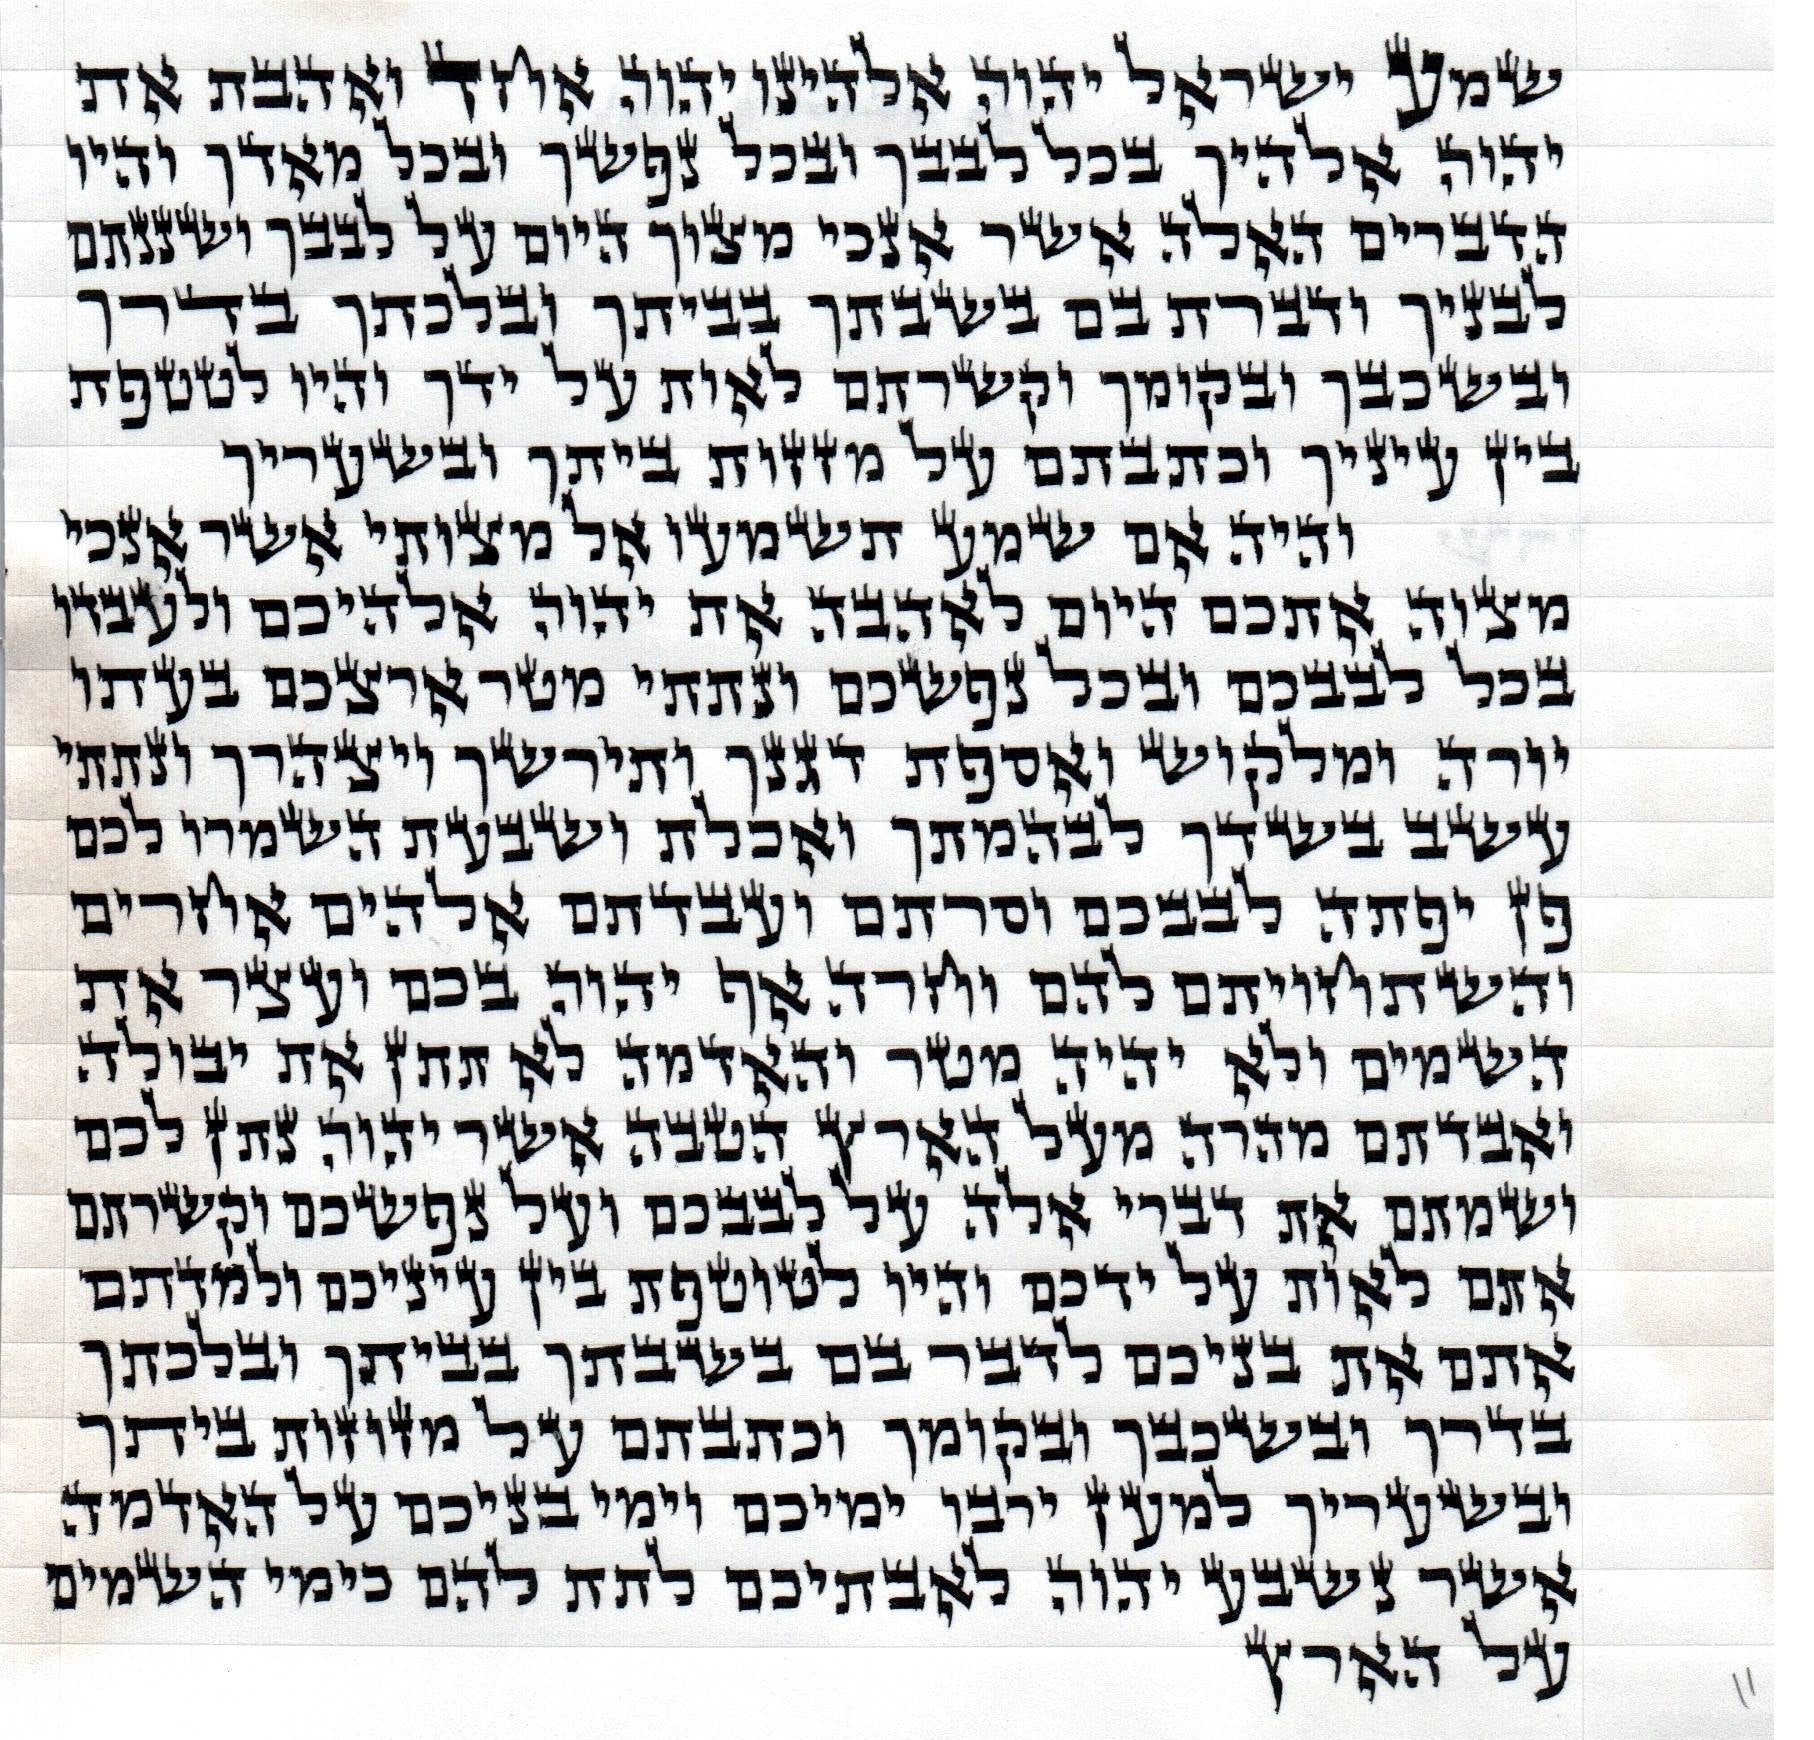 שמע ישראל יהוה אלהינו יהוה אחד ואהבת את
יהוה אלהיך בכל לבבך ובכל נפשך ובכל מאדך והיו
הדברים האלה אשר אנכי מצוך היום על לבבך ושננתם
לבניך ודברת בם בשבתך בביתך ובלכתך בדרך
ובשכבך ובקומך וקשרתם לאות על ידך והיו לטטפת
בין עיניך וכתבתם על מזזות ביתך ובשעריך
והיה אם שמע תשמעו אל מצותי אשר אנכי
מצוה אתכם היום לאהבה את יהוה אלהיכם ולעבדו
בכל לבבכם ובכל נפשכם ונתתי מטר ארצכם בעתו
יורה ומלקוש ואספת דגנך ותירשך ויצהרך ונתתי
עשב בשדך לבהמתך ואכלת ושבעת השמרו לכם
פן יפתה לבבכם וסרתם ועבדתם אלהים אחרים
והשתחויתם להם וחרה אף יהוה בכם ועצר את
השמים ולא יהיה מטר והאדמה לא תתן את יבולה
ואבדתם מהרה מעל הארץ הטבה אשר יהוה נתן לכם
ושמתם את דברי אלה על לבבכם ועל נפשכם וקשרתם
אתם לאות על ידכם והיו לטוטפת בין עיניכם ולמדתם
אתם את בניכם לדבר בם בשבתך בביתך ובלכתך
בדרך ובשכבך ובקומך וכתבתם על מזוזות ביתך
ובשעריך למען ירבו ימיכם וימי בניכם על האדמה
אשר נשבע יהוה לאבתיכם לתת להם כימי השמים
על הארץ
11